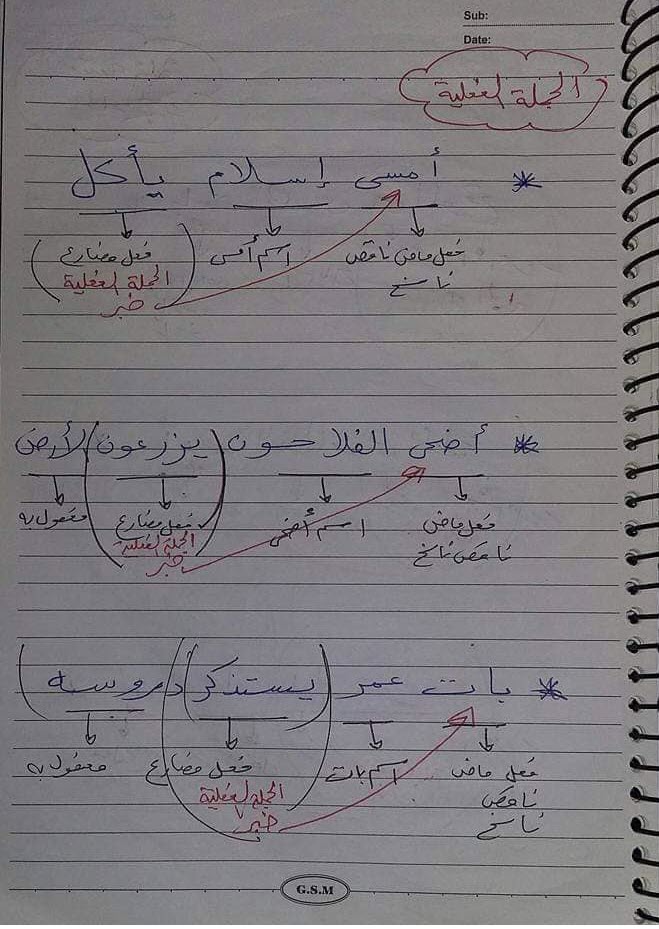 Sub:
Date:
الجملة الفعلية
* أمسى إسلام يأكل
فعل ماض ناقص اسم أمسى (فعل مضارع
ناسخ الجملة الفعلية
خبر)
* أضحى الفلاحون (يزرعون) الأرض
فعل ماض اسم أضحى فعل مضارع مفعول به
ناقص ناسخ الجملة الفعلية
خبر
* بات عمر (يستذكر) دروسه
فعل ماض اسم بات فعل مضارع مفعول به
ناقص الجملة الفعلية
ناسخ خبر
G.S.M